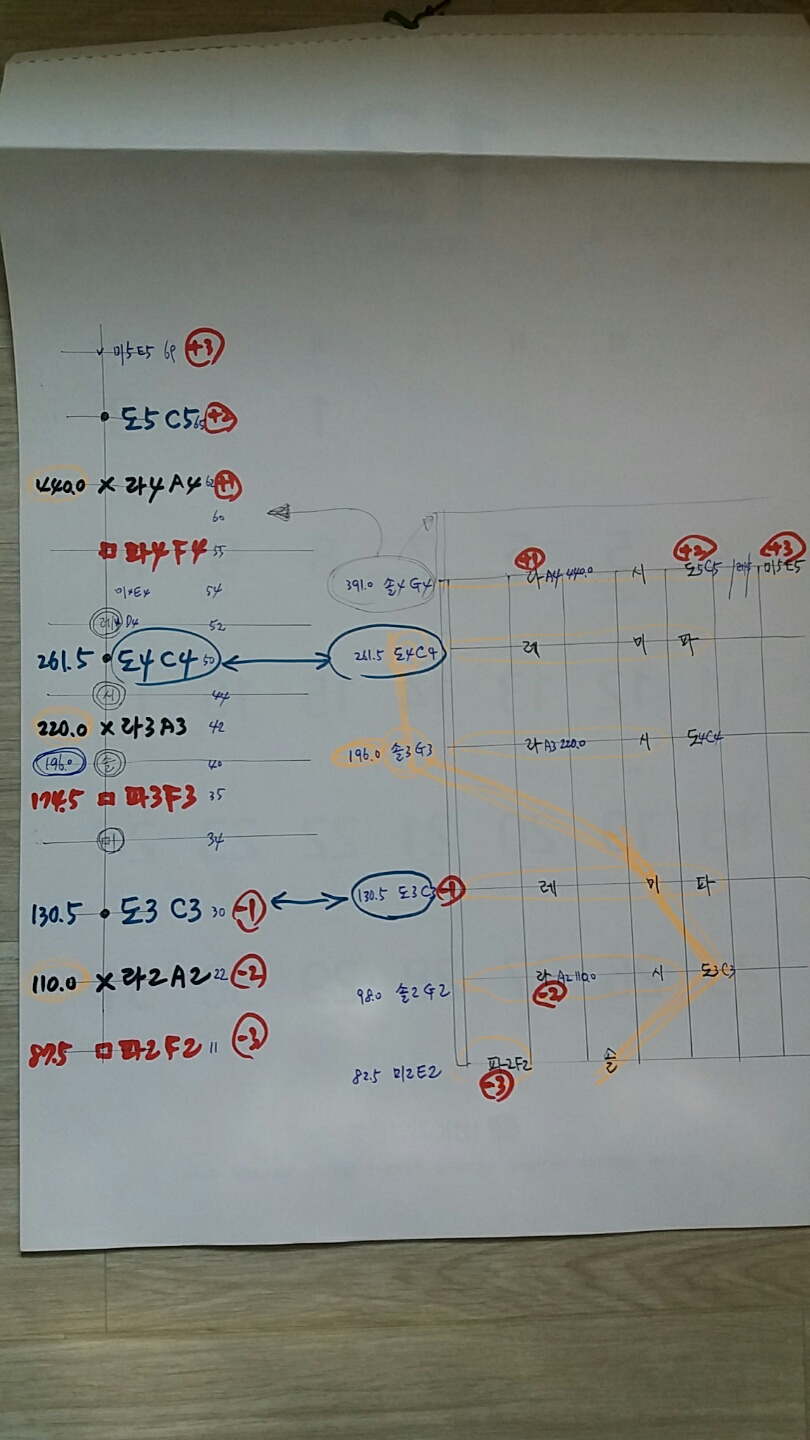 미5E5 69 +3
도5 C5 65 +2
440.0 × 라4 A4 62 +1
60
파4 F4 55
미4E4 54
레4 D4 52
261.5 도4 C4 50
시 44
220.0 × 라3 A3 42
196.0 솔 40
174.5 파3 F3 35
미 34
130.5 도3 C3 30 -1
110.0 × 라2 A2 22 -2
87.5 파2 F2 11 -3
+1 +2 +3
391.0 솔4 G4 라 A4 440.0 시 도5C5 미5E5
261.5 도4 C4 레 미 파
196.0 솔3 G3 라 A3 220.0 시 도4C4
130.5 도3 C3 -1 레 미 파
98.0 솔2 G2 라 A2 110.0 시 도3 C3
-2
82.5 미2 E2 파2F2 솔
-3